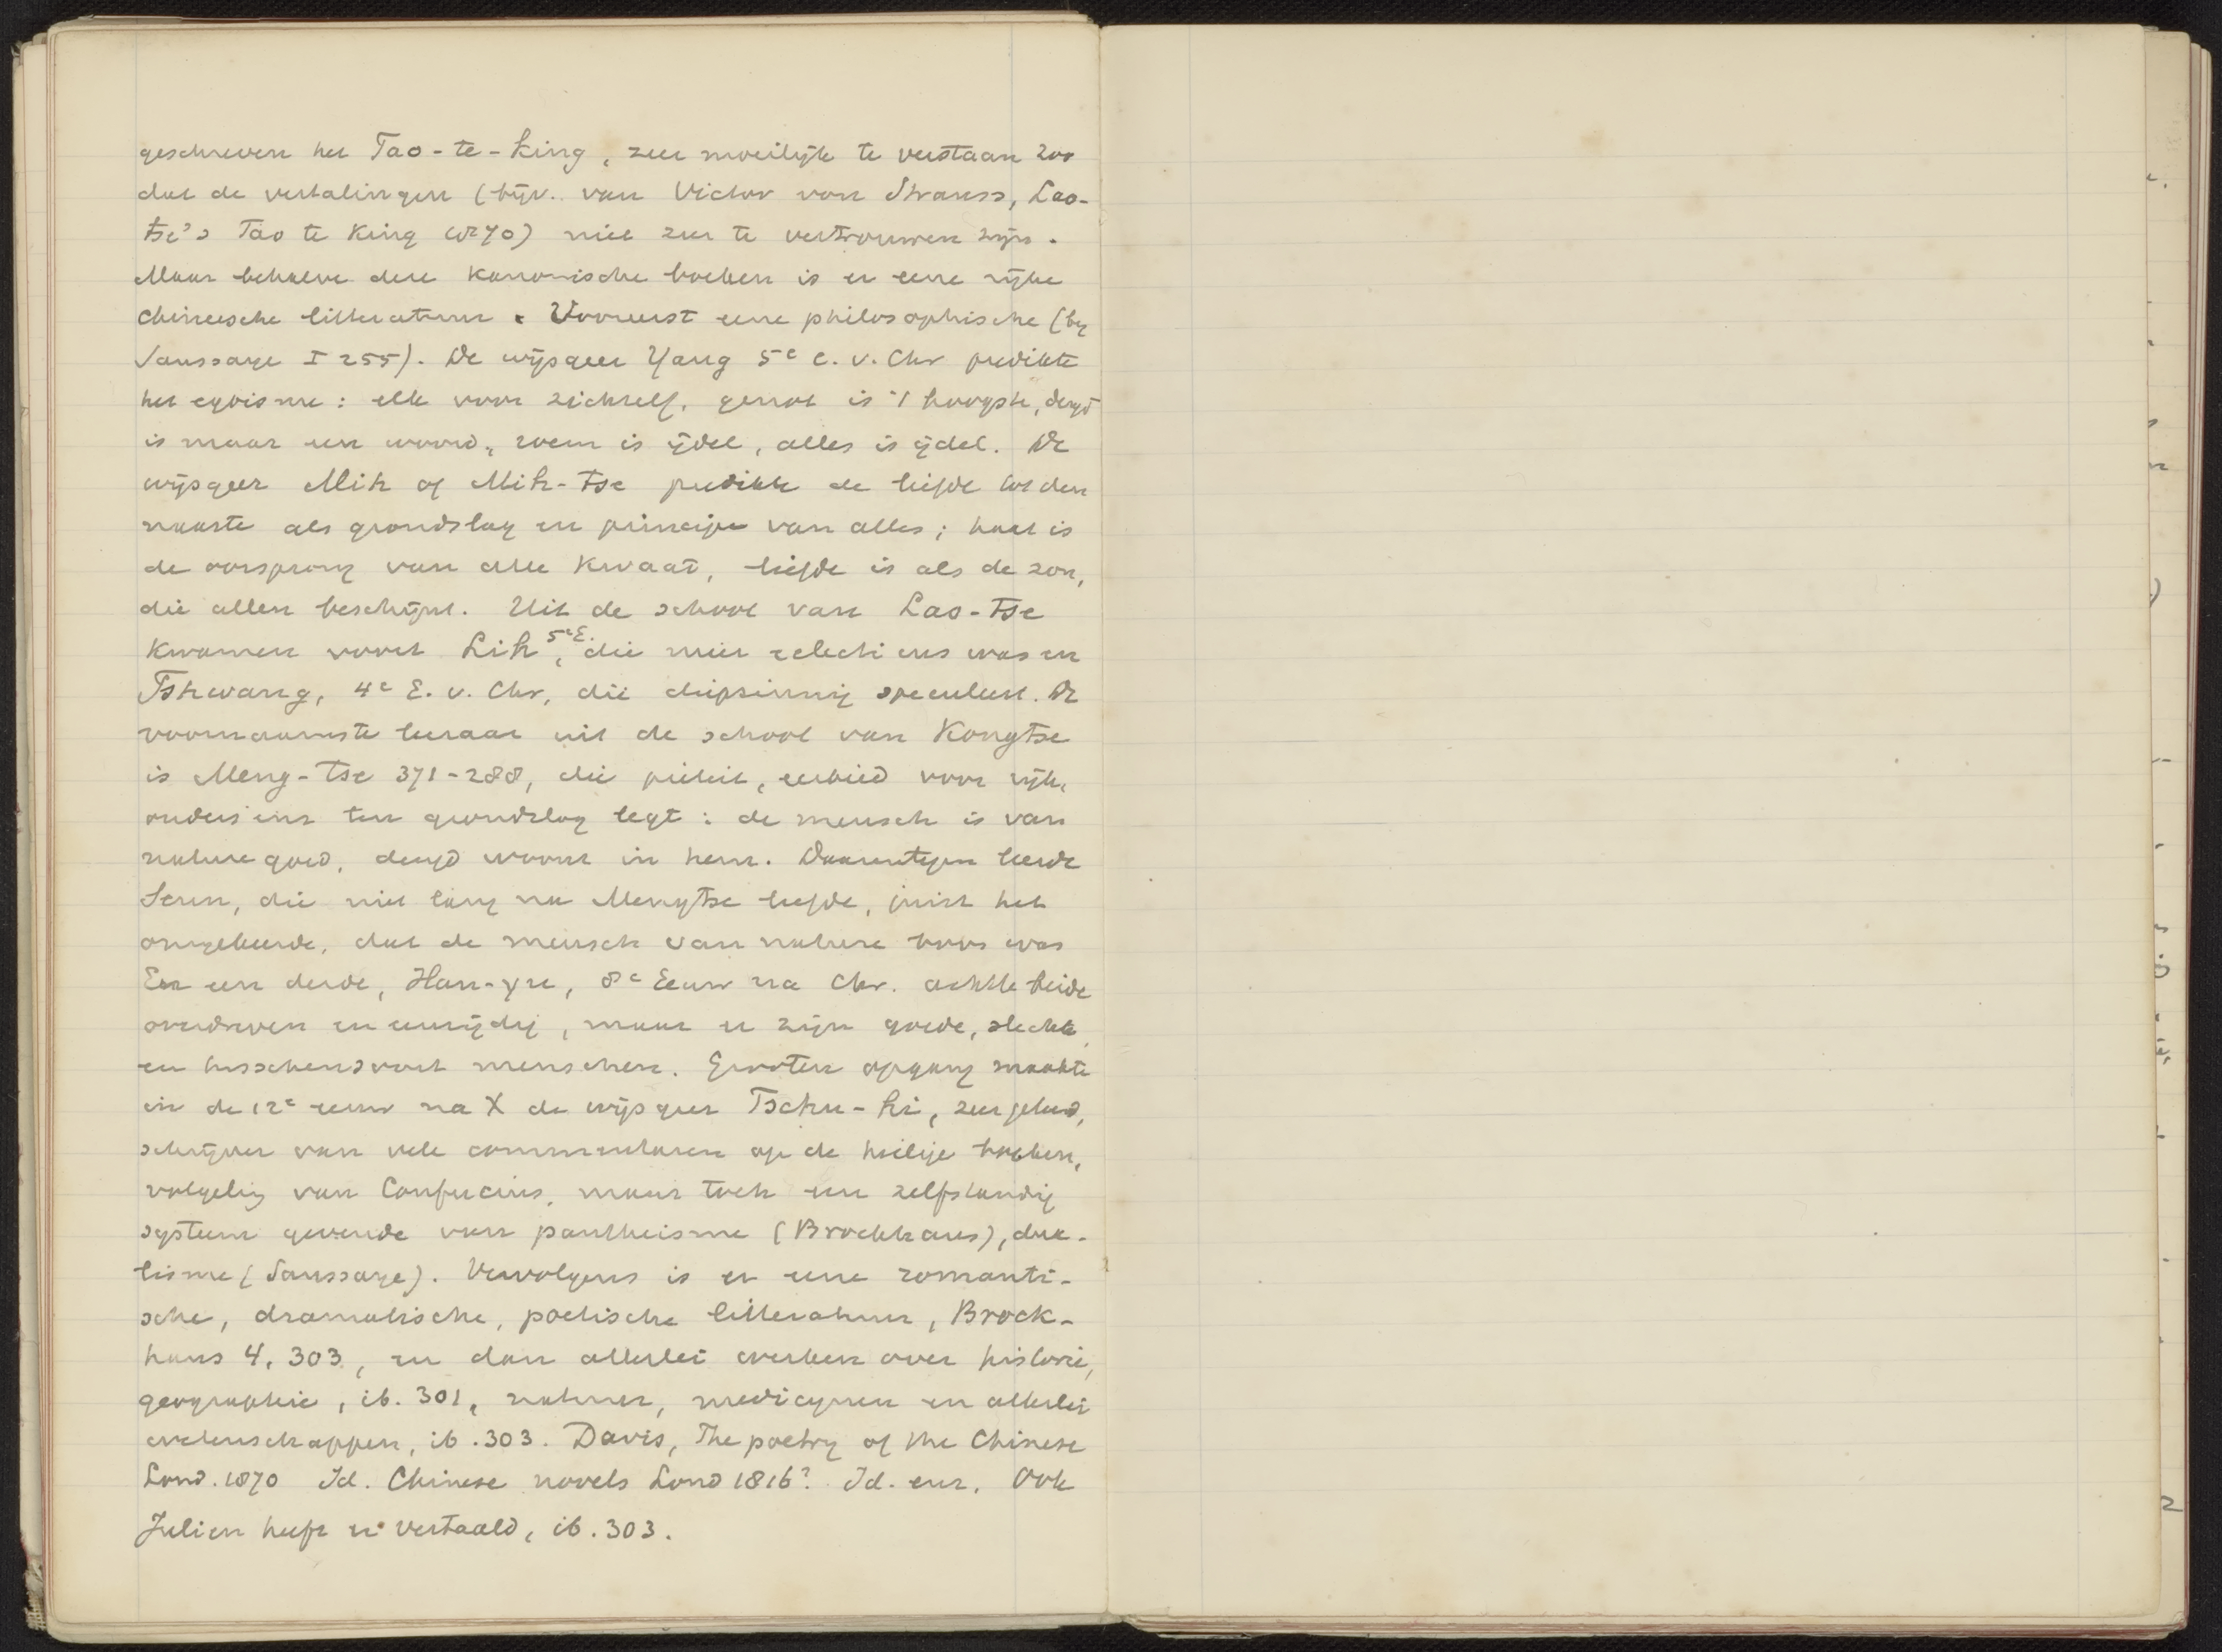 geschreven het Tao-te-king, zeer moeilijk te verstaan zoo
dat de vertalingen (bijv. van Victor von Strauss, Lao-
tse's Tao te King 1870) niet zeer te vertrouwen zijn.
Maar behalve deze kanonische boeken is er eene rijke
chineesche litteratuur. Vooreerst eene philosophische (by
Saussaye I 255). De wijsgeer Yang 5e e. v. Chr predikte
het egoisme: elk voor zichzelf, genot is 't hoogste, deugd
is maar een woord, roem is ijdel, alles is ijdel. De
wijsgeer Mih of Mih-tse predikte de liefde tot den
naaste als grondslag en principe van alles; haat is
de oorsprong van alle kwaad, liefde is als de zon,
die allen beschijnt. Uit de school van Lao-tse
kwamen voort Lih, 5e E. die meer eclecticus was en
Tshwang, 4e E. v. Chr, die diepzinnig speculeert. De
voornaamste leeraar uit de school van Kongtse
is Meng-tse 371-288, die pieteit, eerbied voor rijk,
ouders enz ten grondslag legt: de mensch is van
nature goed, deugd woont in hem. Daarentegen leerde
Seun, die niet lang na Mengtse leefde, juist het
omgekeerde, dat de mensch van nature boos was
En een derde, Han-yu, 8e Eeuw na Chr. achtte beide
overdreven en eenzijdig, maar er zijn goede, slechte
en tusschensoort menschen. Grooten opgang maakte
in de 12e eeuw na X de wijsgeer Tschu-hi, zeer geleerd,
schrijver van vele commentaren op de heilige boeken,
volgeling van Confucius, maar toch een zelfstandig
systeem gevende van pantheisme (Brockhaus), dua-
lisme (Saussaye). Vervolgens is er eene romanti-
sche, dramatische, poetische litteratuur, Brock-
haus 4, 303, en dan allerlei werken over historie,
geographie, ib. 301, natuur, medicynen en allerlei
wetenschappen, ib. 303. Davis, The poetry of the Chinese
Lond. 1870 Id. Chinese novels Lond 1816? Id. enz. Ook
Julien heeft er vertaald, ib. 303.